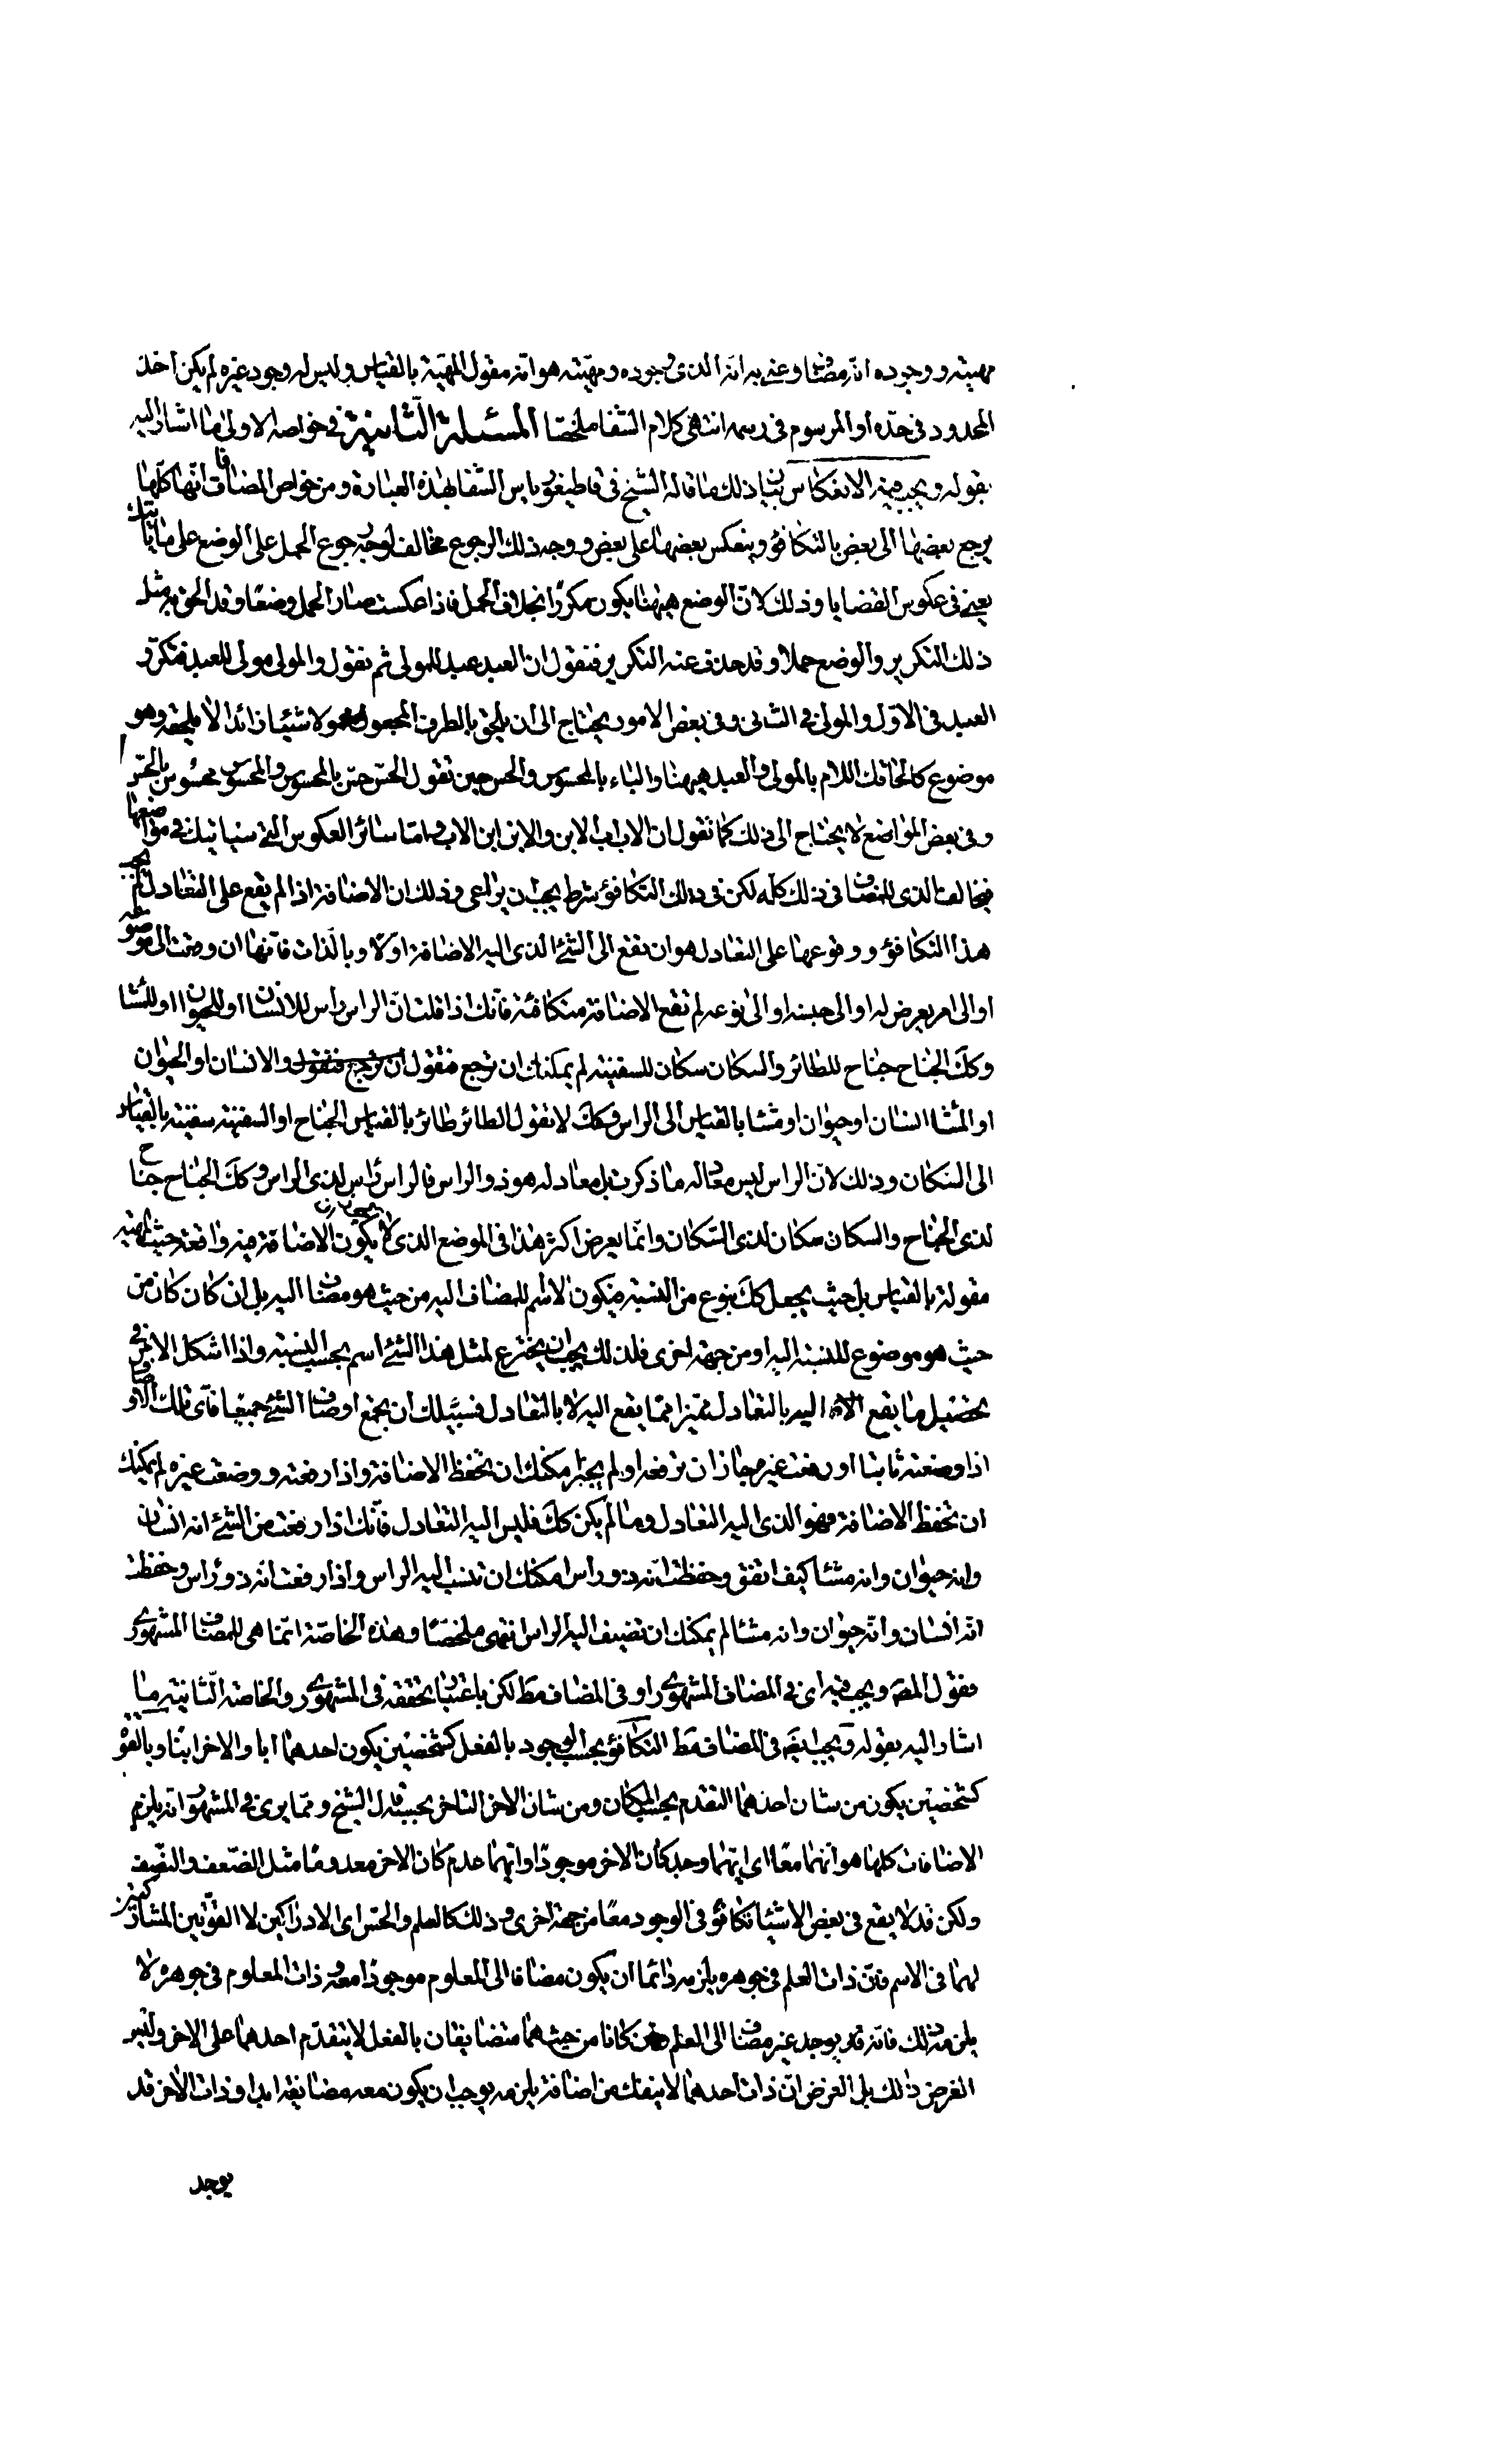 مهيته ووجوده انه مضاف وعنى به انه الذى وجوده ومهيته هو انه مقول المهية بالقياس وليس له وجود غيره لم يكن اخذ
المحدود فى حده او المرسوم فى رسمه انتهى كلام الشفا ملخصا المسئلة الثانية فى خواصه الاولى ما اشار اليه
بقوله ويجب فيه الانعكاس بيان ذلك ما قاله الشيخ فى قاطيغورياس الشفا بهذه العبارة ومن خواص المضافات انها كلها
يرجع بعضها الى بعض بالتكافؤ وينعكس بعضها على بعض ووجه ذلك الرجوع مخالف لوجه رجوع الحمل على الوضع على ما ياتيك
يعنى فى عكوس القضايا وذلك لان الوضع هيهنا يكون مكررا بخلاف الحمل فاذا عكست صار الحمل وضعا وقد الحق به مثل
ذلك التكرير والوضع حملا وقد حذف عنه التكرير فتقول ان العبد عبد للمولى ثم تقول والمولى مولى للعبد فتكرر
العبد فى الاول والمولى فى الثانى وفى بعض الامور يحتاج الى ان يلحق بالطرف المجعول محمولا شيئا زائدا لا يلحقه وهو
موضوع كالحاقك اللام بالمولى والعبد هيهنا والباء بالمحسوس والحس حين تقول الحس حس بالمحسوس والمحسوس محسوس بالحس
وفى بعض المواضع لا يحتاج الى ذلك كما تقول ان الاب اب الابن والابن ابن الاب واما سائر العكوس التى سياتيك فى مواضعها
فيخالف الذى للمضاف فى ذلك كله لكن فى ذلك التكافؤ شرط يجب ان يراعى وذلك ان الاضافة اذا لم يقع على التعادل لم يجب
هذا التكافؤ ووقوعها على التعادل هو ان تقع الى الشئ الذى اليه الاضافة اولا وبالذات فانها ان وقعت الى موضوعه
او الى امر يعرض له او الى جنسه او الى نوعه لم تقع الاضافة متكافئة فانك اذا قلت ان الراس راس للانسان او للحيوان او للمشا
وكك الجناح جناح للطائر والسكان سكان للسفينة لم يمكنك ان ترجع فتقول ان ترجع فتقول والانسان او الحيوان
او المشا انسان او حيوان او مشا بالقياس الى الراس وكك لا تقول الطائر طائر بالقياس الجناح او السفينة سفينة بالقياس
الى السكان وذلك لان الراس ليس معادله ما ذكرت بل معادله هو ذو الراس فالراس راس لذى الراس وكك الجناح جناح
لذى الجناح والسكان سكان لذى السكان وانما يعرض اكثر هذا فى الموضع الذى لا يكون الاضافة فيه واقعة حيث المهية
مقولة بالقياس بل حيث يجعل كك بنوع من النسبة فيكون الاسم للمضاف اليه من حيث هو مضاف اليه بل ان كان كان من
حيث هو موضوع للنسبة اليه او من جهة اخرى فلذلك يجب ان يخترع لمثل هذا الشئ اسم بحسب النسبة واذا اشكل الامر فى
تحصيل ما يقع الاضافة اليه بالتعادل مميزا مما يقع اليه لا بالتعادل فسبيلك ان تجمع اوصاف الشئ جميعا فاى تلك الاوصاف
اذا وضعته ثابتا او رفعت غيره جاز ان ترفعه او لم يجز مكنك ان تحفظ الاضافة واذا رفعته ووضعت غيره لم يمكنك
ان تحفظ الاضافة فهو الذى اليه التعادل وما لم يكن كك فليس اليه التعادل فانك اذا رفعت من الشئ انه انسان
وانه حيوان وانه مشا كيف اتفق وحفظت انه ذو راس امكنك ان تنسب اليه الراس واذا رفعت انه ذو راس وحفظت
انه انسان وانه حيوان وانه مشا لم يمكنك ان تضيف اليه الراس انتهى ملخصا وهذه الخاصة انما هى للمضاف المشهورى
فقول المصه ويجب فيه اى فى المضاف المشهورى او فى المضاف مط لكن باعتبار تحققه فى المشهورى والخاصة الثانية ما
اشار اليه بقوله ويجب ايضه فى المضاف مط التكافؤ بحسب الوجود بالفعل كشخصين يكون احدهما ابا والاخر ابنا وبالقوة
كشخصين يكون من شان احدهما التقدم بحسب المكان ومن شان الاخر التاخر بحسبه قال الشيخ ومما يرى فى المشهور انه يلزم
الاضافات كلها هو انهما معا اى ايهما وجد كان الاخر موجودا او ايهما عدم كان الاخر معدوما مثل الضعف والنصف
ولكن قد لا يقع فى بعض الاشيا تكافؤ فى الوجود معا من جهة اخرى وذلك كالعلم والحس اى الادراكين لا القوتين المشاركتين
لهما فى الاسم فان ذات العلم فى جوهره يلزمه دائما ان يكون مضافا الى المعلوم موجودا معه وذات المعلوم فى جوهره لا
يلزمه ذلك فانه قد يوجد غير مضاف الى العلم وان كانا من حيث هما متضايفان بالفعل لا يتقدم احدهما على الاخر وليس
الغرض ذلك بل الغرض ان ذات احدهما لا ينفك من اضافة يلزمه يوجب ان يكون معه مضايفه ابدا وذات الاخر قد
يوجد